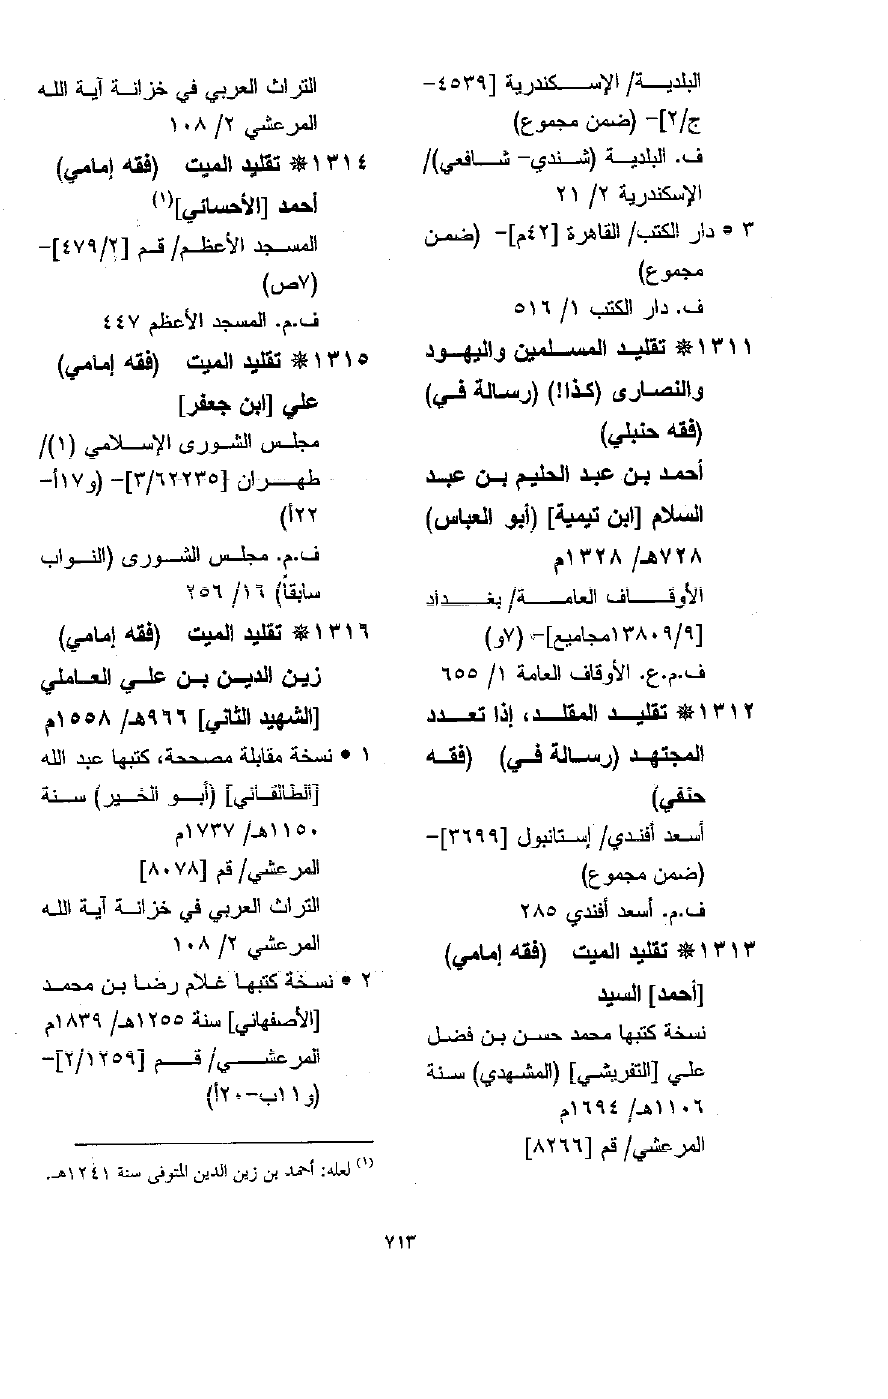 البلديـــة/ الإســـكندرية [٤٥٣٩-
ج/٢]- (ضمن مجموع)
ف. البلدية (شندي- شافعي)/
الإسكندرية ٢/ ٢١
٣ • دار الكتب/ القاهرة [٤٢م]- (ضمن
مجموع)
ف. دار الكتب ١/ ٥١٦
١٣١١ ❋ تقليد المسلمين واليهود
والنصارى (كذا!) (رسالة في)
(فقه حنبلي)
أحمد بن عبد الحليم بن عبد
السلام [ابن تيمية] (أبو العباس)
٧٢٨هـ/ ١٣٢٨م
الأوقـــاف العامـــة/ بغـــداد
[١٣٨٠٩/٩مجاميع]- (٧و)
ف.م.ع. الأوقاف العامة ١/ ٦٥٥
١٣١٢ ❋ تقليد المقلد، إذا تعدد
المجتهد (رسالة في) (فقه
حنفي)
أسعد أفندي/ إستانبول [٣٦٩٩]-
(ضمن مجموع)
ف.م. أسعد أفندي ٢٨٥
١٣١٣ ❋ تقليد الميت (فقه إمامي)
[أحمد] السيد
نسخة كتبها محمد حسن بن فضل
علي [التفريشي] (المشهدي) سنة
١١٠٦هـ/ ١٦٩٤م
المرعشي/ قم [٨٢٦٦]
التراث العربي في خزانة آية الله
المرعشي ٢/ ١٠٨
١٣١٤ ❋ تقليد الميت (فقه إمامي)
أحمد [الأحسائي](١)
المسجد الأعظم/ قم [٤٧٩/٢]-
(٧ص)
ف.م. المسجد الأعظم ٤٤٧
١٣١٥ ❋ تقليد الميت (فقه إمامي)
علي [ابن جعفر]
مجلس الشورى الإسلامي (١)/
طهـــران [٣/٦٢٢٣٥]- (و١٧أ-
٢٢أ)
ف.م. مجلس الشورى (النواب
سابقاً) ١٦/ ٢٥٦
١٣١٦ ❋ تقليد الميت (فقه إمامي)
زين الدين بن علي العاملي
[الشهيد الثاني] ٩٦٦هـ/ ١٥٥٨م
١ • نسخة مقابلة مصححة، كتبها عبد الله
[الطالقاني] (أبو الخير) سنة
١١٥٠هـ/ ١٧٣٧م
المرعشي/ قم [٨٠٧٨]
التراث العربي في خزانة آية الله
المرعشي ٢/ ١٠٨
٢ • نسخة كتبها غلام رضا بن محمد
[الأصفهاني] سنة ١٢٥٥هـ/ ١٨٣٩م
المرعشـــي/ قـــم [٢/١٢٥٩]-
(و١١ب-٢٠أ)
(١) لعله: أحمد بن زين الدين المتوفى سنة ١٢٤١هـ.
٧١٣